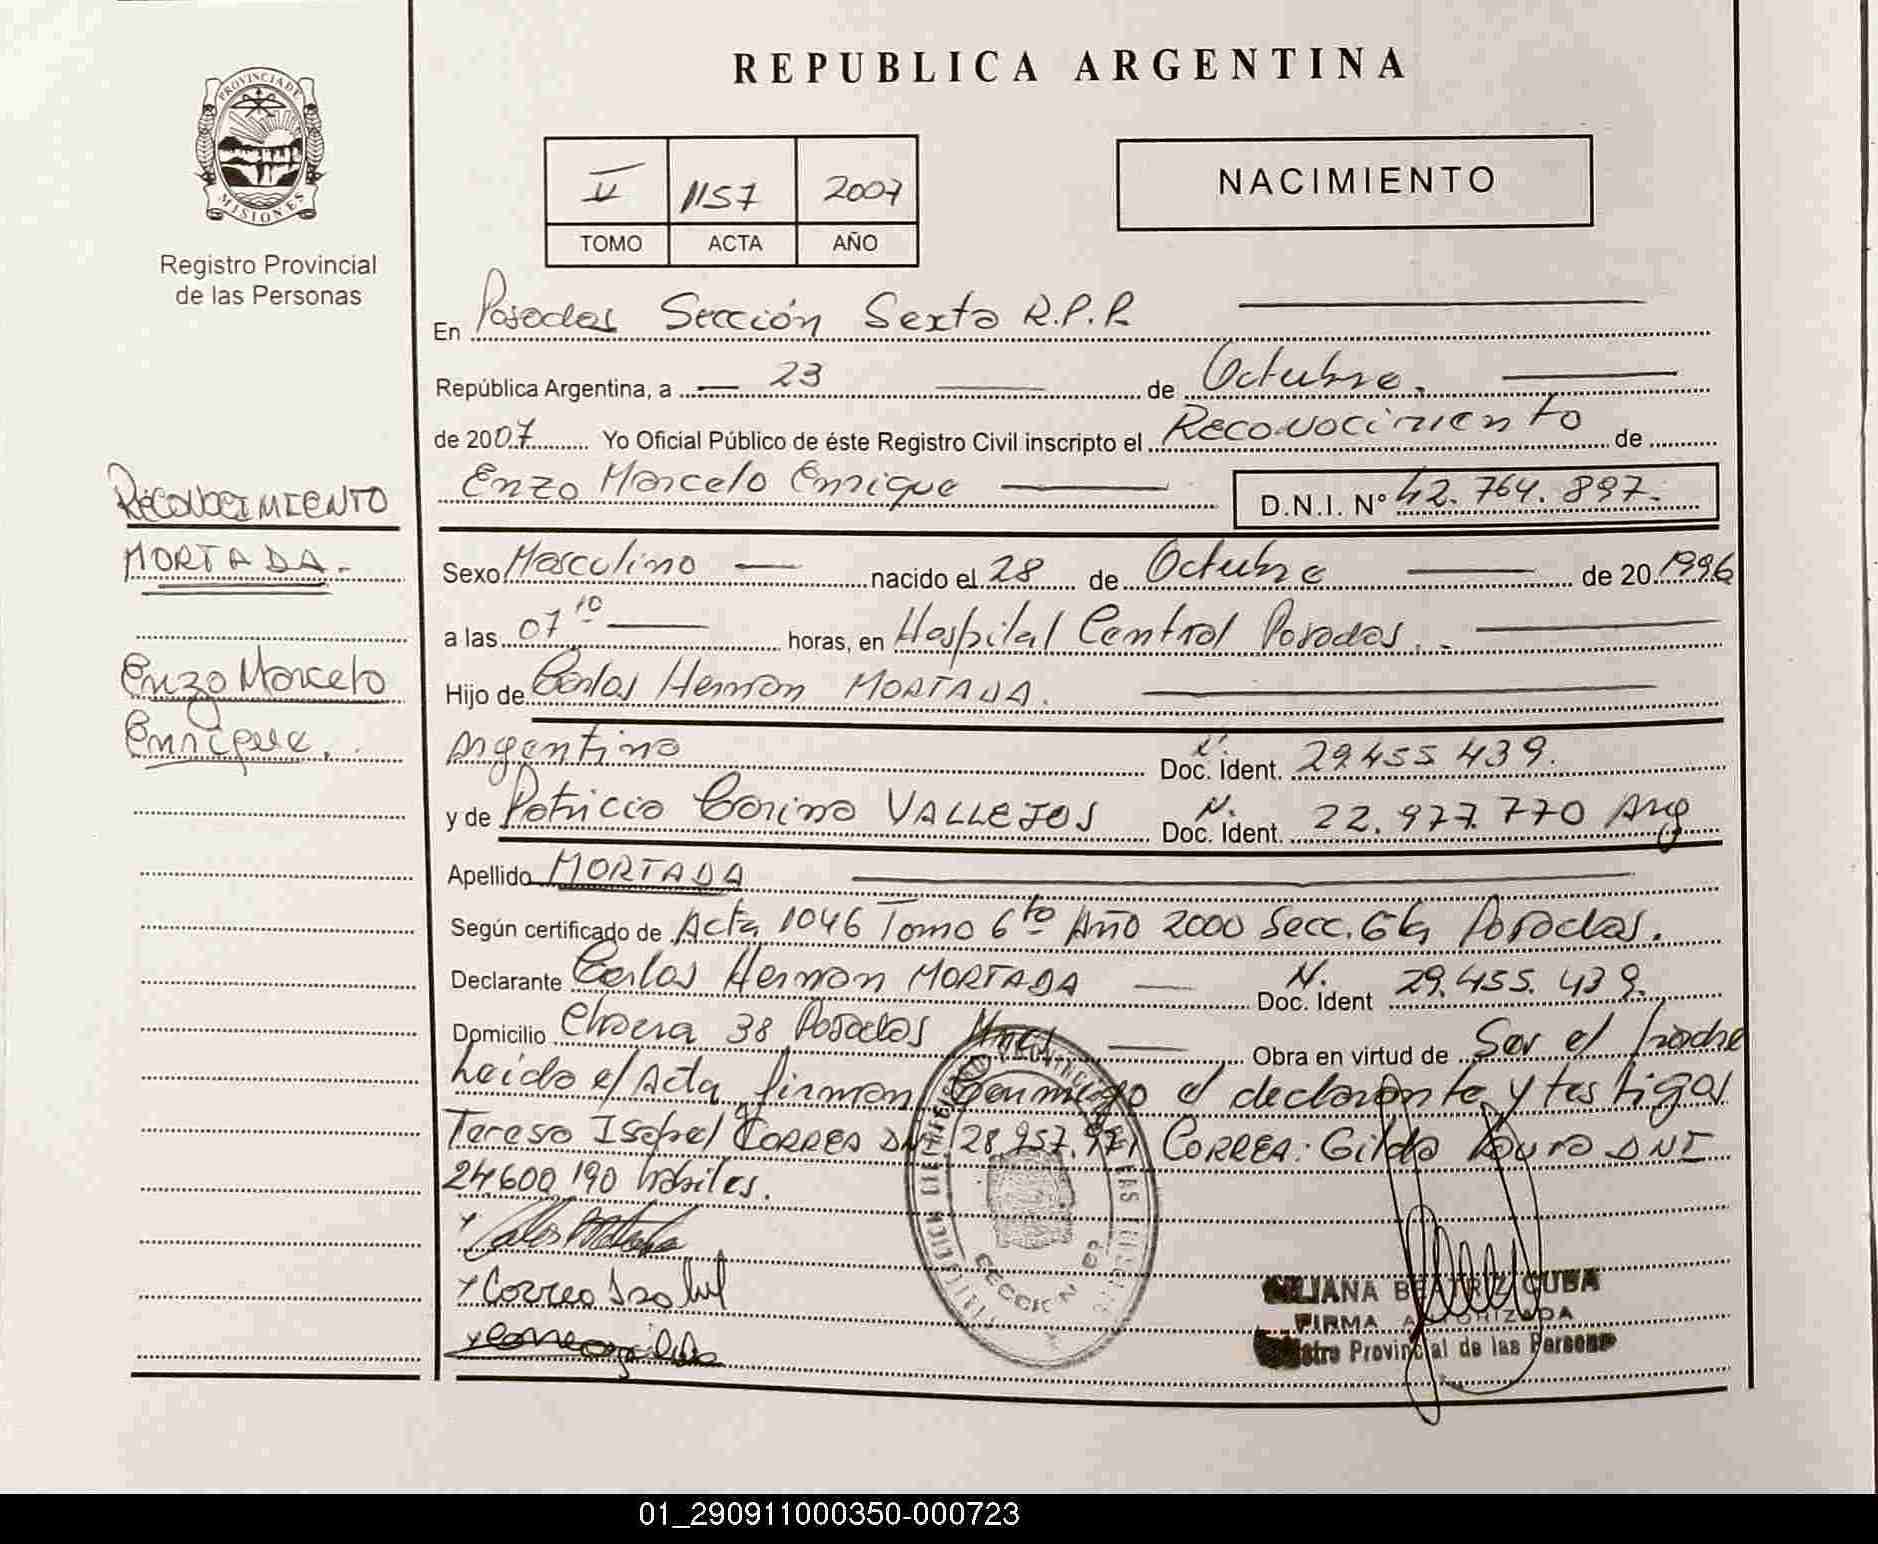 REPUBLICA ARGENTINA
PROVINCIA DE
MISIONES
Registro Provincial
de las Personas
V 1157 2007
TOMO ACTA AÑO
NACIMIENTO
En Posadas Sección Sexta R.P.P.
República Argentina, a 23 de Octubre.
de 2007 Yo Oficial Público de éste Registro Civil inscripto el Reconocimiento de
Enzo Marcelo Enrique D.N.I. Nº 42.764.897.
RECONOCIMIENTO
MORTADA.
Enzo Marcelo
Enrique.
Sexo Masculino nacido el 28 de Octubre de 20 1996
a las 07 10 horas, en Hospital Central Posadas.
Hijo de Carlos Hernan MORTADA.
Argentino N. Doc. Ident. 29.455.439.
y de Patricia Corina VALLEJOS N. Doc. Ident. 22.977.770 Arg
Apellido MORTADA
Según certificado de Acta 1046 Tomo 6to Año 2000 Secc. 6ta Posadas.
Declarante Carlos Hernan MORTADA N. Doc. Ident 29.455.439.
Domicilio 38 Posadas Mnes Obra en virtud de Ser el padre
Leida el Acta firman conmigo el declarante y testigos
Teresa Isabel CORREA DNI 28.957.971 CORREA: Gilda DNI
24.600.190 habiles.
Correa Isabel
Correa Gilda
SECCION 6ª
BEATRIZ CUBA
FIRMA AUTORIZADA
Registro Provincial de las Personas
01_290911000350-000723